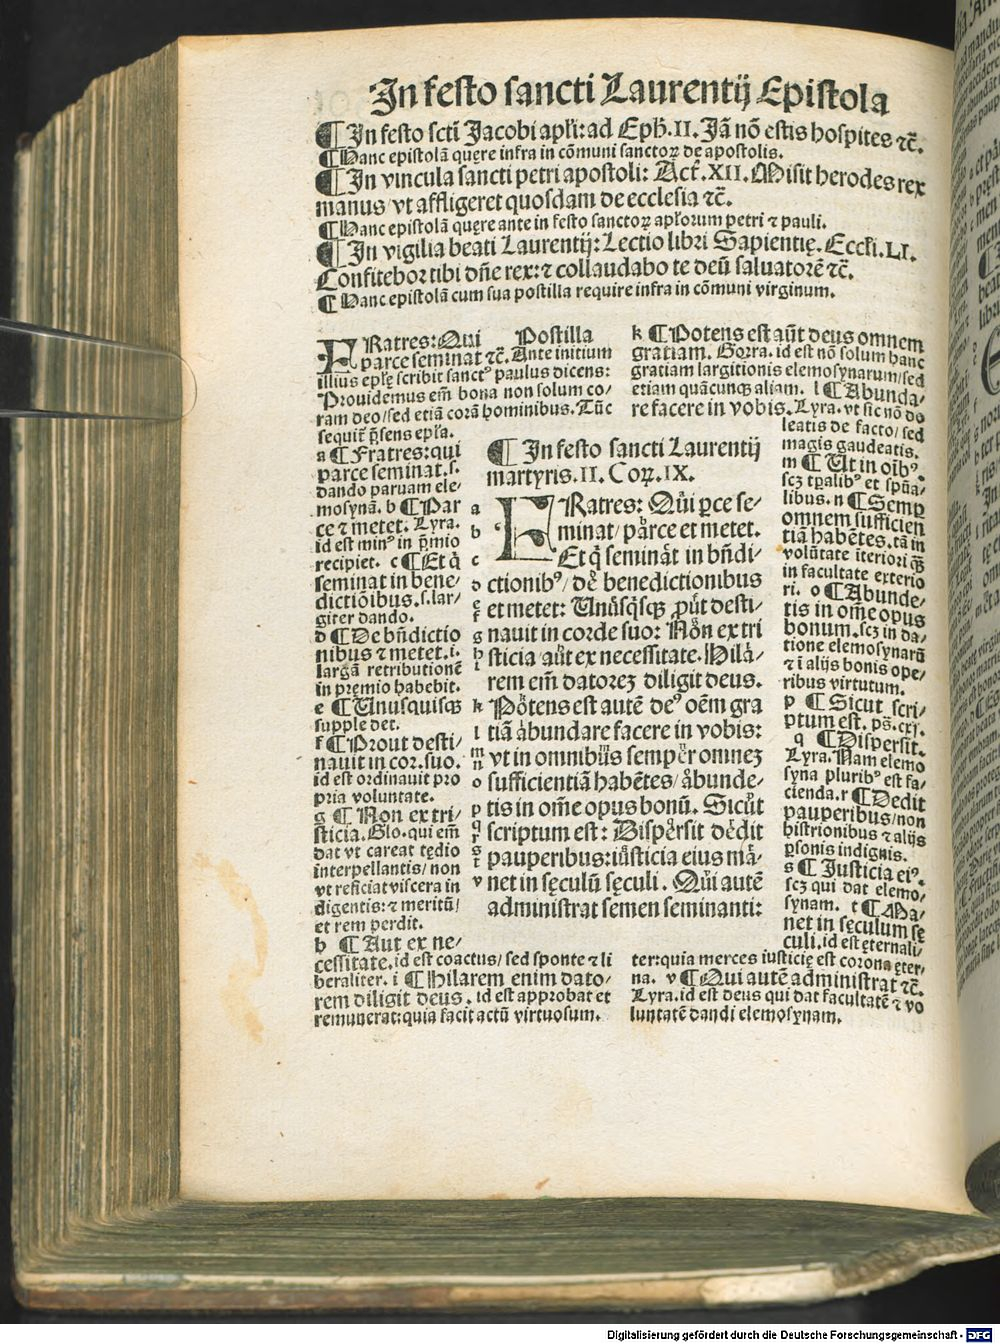 In festo sancti Laurentij Epistola
¶ In festo scti Jacobi apłi: ad Eph̄. II. Jā nō estis hospites ⁊c̄.
¶ Hanc epistolā quęre infra in cōmuni sanctoꝝ de apostolis.
¶ In vincula sancti petri apostoli: Act̄. XII. Misit herodes rex
manus/ vt affligeret quosdam de ecclesia ⁊c̄.
¶ Hanc epistolā quęre ante in festo sanctoꝝ apłorum petri ⁊ pauli.
¶ In vigilia beati Laurentij: Lectio libri Sapientię. Eccłi. LI.
Confitebor tibi dn̄e rex: ⁊ collaudabo te deū saluatorē ⁊c̄.
¶ Hanc epistolā cum sua postilla require infra in cōmuni virginum.
FRatres: Qui Postilla
parce seminat ⁊c̄. Ante initium
illius epłę scribit sanctꝰ paulus dicens:
Prouidemus em̄ bona non solum co/
ram deo/ sed etiā corā hominibus. Tūc
sequit̄ p̄sens epła.
a ¶ Fratres: qui
parce seminat. s.
dando paruam ele/
mosynā. b ¶ Par
ce ⁊ metet. Lyra.
id est minꝰ in p̄mio
recipiet. c ¶ Et q̄
seminat in bene/
dictiōibus. s. lar/
giter dando.
d ¶ De bn̄dictio
nibus ⁊ metet. i.
largā retributionē
in pręmio habebit.
e ¶ Unusquisqꝫ
supple det.
f ¶ Prout desti/
nauit in cor. suo.
id est ordinauit pro
pria voluntate.
g ¶ Non ex tri/
sticia. Glo. qui em̄
dat vt careat tędio
interpellantis/ non
vt reficiat viscera in
digentis: ⁊ meritū/
et rem perdit.
h ¶ Aut ex ne/
cessitate. id est coactus/ sed sponte ⁊ li
beraliter. i ¶ Hilarem enim dato/
rem diligit deus. id est approbat et
remunerat: quia facit actū virtuosum.
¶ In festo sancti Laurentij
martyris. II. Coꝝ. IX.
FRatres: Qui ꝑce se/
minat/ parce et metet.
Et q̄ seminat in bn̄di/
ctionibꝰ/ de benedictionibus
et metet: Unusq̄sqꝫ put desti/
nauit in corde suo: Non ex tri
sticia aut ex necessitate. Hila/
rem em̄ datorez diligit deus.
Potens est autē deꝰ oēm gra
tiā abundare facere in vobis:
vt in omnibus semper omnez
sufficientiā habētes/ abunde/
tis in om̄e opus bonū. Sicut
scriptum est: Dispersit dedit
pauperibus: iusticia eius ma/
net in sęculū sęculi. Qui autē
administrat semen seminanti:
k ¶ Potens est aūt deus omnem
gratiam. Gorra. id est nō solum hanc
gratiam largitionis elemosynarum/ sed
etiam quācunqꝫ aliam. l ¶ Abunda/
re facere in vobis. Lyra. vt sic nō do
leatis de facto/ sed
magis gaudeatis.
m ¶ Ut in oībꝰ.
scꝫ tꝑalibꝰ et spūa/
libus. n ¶ Semꝑ
omnem sufficien
tiā habētes. tā in
volūtate īteriori qꝫ
in facultate exterio
ri. o ¶ Abunde/
tis in om̄e opus
bonum. scꝫ in da/
tione elemosynarū
⁊ ī alijs bonis ope/
ribus virtutum.
p ¶ Sicut scri/
ptum est. ps̄. cxj.
q ¶ Dispersit.
Lyra. Nam elemo
syna pluribꝰ est fa/
cienda. r ¶ Dedit
pauperibus/ non
histrionibus ⁊ alijs
ꝑsonis indignis.
s ¶ Justicia eiꝰ.
scꝫ qui dat elemo/
synam. t ¶ Ma/
net in sęculum sę
culi. id est ęternali/
ter: quia merces iusticię est corona ęter/
na. v ¶ Qui autē administrat ⁊c̄.
Lyra. id est deus qui dat facultatē ⁊ vo
luntatē dandi elemosynam.
Digitalisierung gefördert durch die Deutsche Forschungsgemeinschaft - DFG